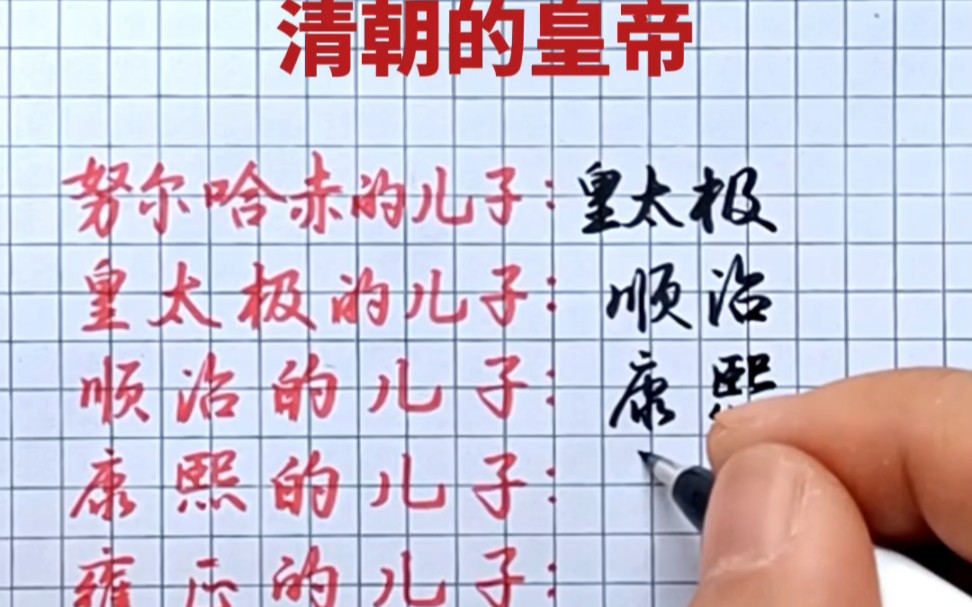 清朝的皇帝
努尔哈赤的儿子：皇太极
皇太极的儿子：顺治
顺治的儿子：康熙
康熙的儿子：
雍正的儿子：